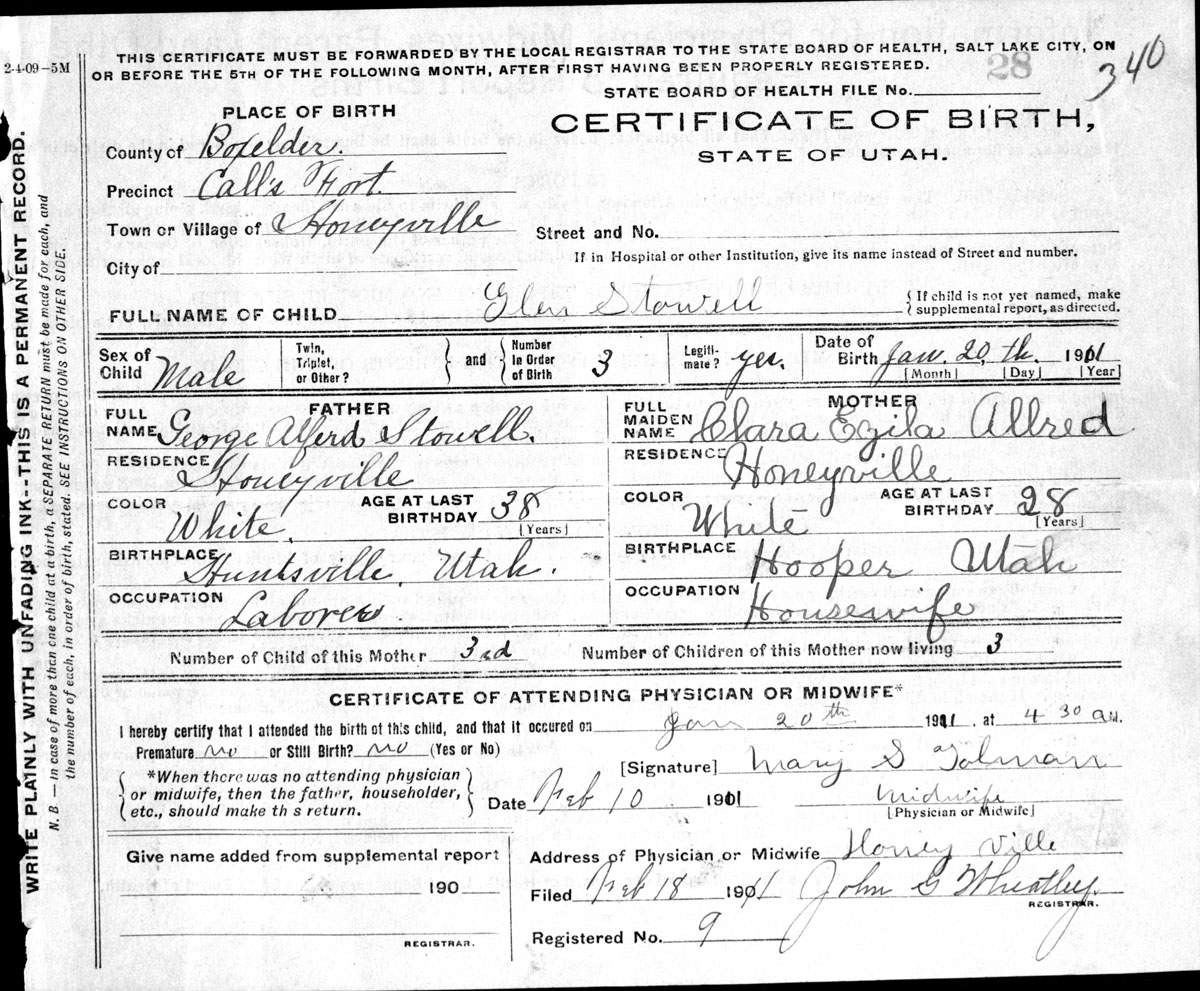 2-4-09-5M
THIS CERTIFICATE MUST BE FORWARDED BY THE LOCAL REGISTRAR TO THE STATE BOARD OF HEALTH, SALT LAKE CITY, ON
OR BEFORE THE 5TH OF THE FOLLOWING MONTH, AFTER FIRST HAVING BEEN PROPERLY REGISTERED.
28
340
STATE BOARD OF HEALTH FILE No.
PLACE OF BIRTH
CERTIFICATE OF BIRTH,
STATE OF UTAH.
County of Boxelder.
Precinct Call's Fort.
Town or Village of Honeyville
Street and No.
City of
If in Hospital or other Institution, give its name instead of Street and number.
FULL NAME OF CHILD Glen Stowell
{ If child is not yet named, make
supplemental report, as directed.
Sex of Child Male
Twin, Triplet, or Other?
} and {
Number In Order of Birth 3
Legitimate? yes.
Date of Birth Jan. 20 th. 1911
[Month] [Day] [Year]
FATHER
FULL NAME George Alferd Stowell.
RESIDENCE Honeyville
COLOR White.
AGE AT LAST BIRTHDAY 38
[Years]
BIRTHPLACE Huntsville, Utah.
OCCUPATION Laborer
MOTHER
FULL MAIDEN NAME Clara Ezila Allred
RESIDENCE Honeyville
COLOR White
AGE AT LAST BIRTHDAY 28
[Years]
BIRTHPLACE Hooper Utah
OCCUPATION Housewife
Number of Child of this Mother 3rd Number of Children of this Mother now living 3
CERTIFICATE OF ATTENDING PHYSICIAN OR MIDWIFE*
I hereby certify that I attended the birth of this child, and that it occured on Jan 20th 1911, at 4 30 A M.
Premature no or Still Birth? no (Yes or No)
*When there was no attending physician
or midwife, then the father, householder,
etc., should make th s return.
[Signature] Mary S Tolman
Date Feb 10 1911 Midwife
[Physician or Midwife]
Give name added from supplemental report
190
REGISTRAR.
Address of Physician or Midwife Honey ville
Filed Feb 18 1911 John G Wheatley.
REGISTRAR.
Registered No. 9
WRITE PLAINLY WITH UNFADING INK--THIS IS A PERMANENT RECORD.
N. B. — In case of more than one child at a birth, a SEPARATE RETURN must be made for each, and
the number of each, in order of birth, stated. SEE INSTRUCTIONS ON OTHER SIDE.